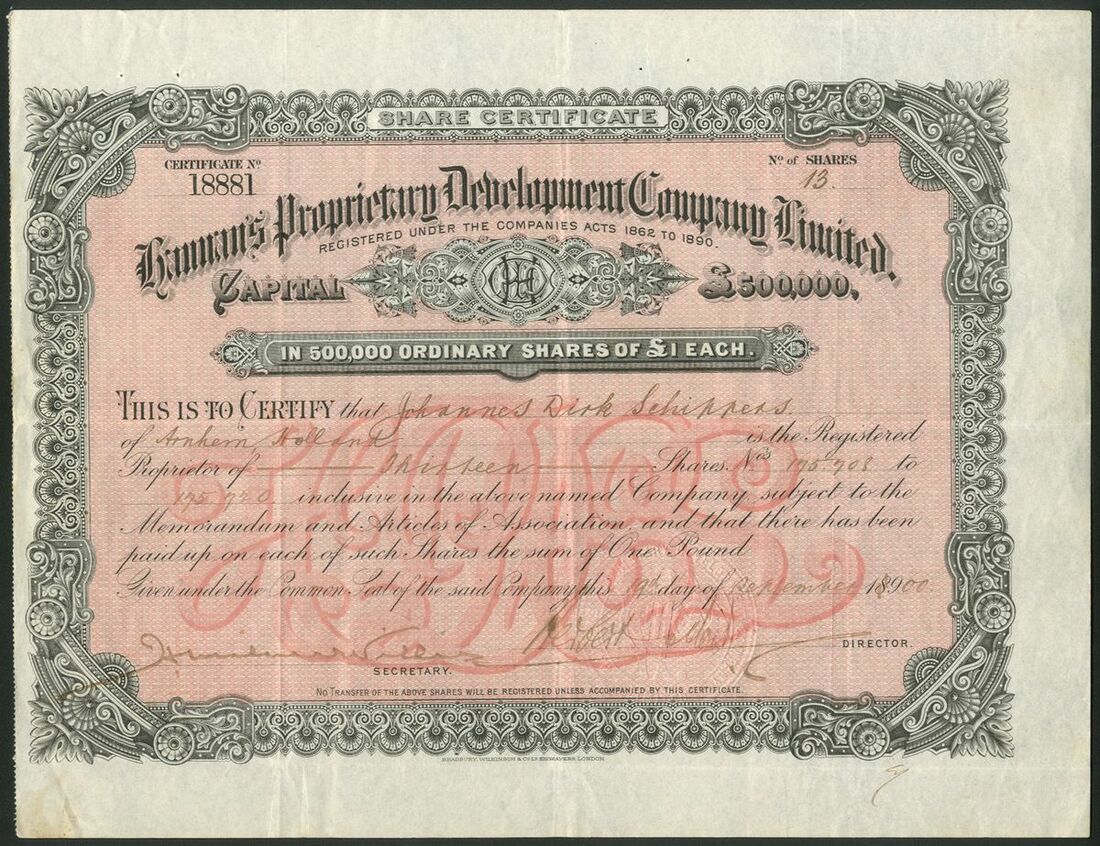 SHARE CERTIFICATE
CERTIFICATE Nº
18881
Nº of SHARES
13.
Hannan's Proprietary Development Company Limited.
REGISTERED UNDER THE COMPANIES ACTS 1862 TO 1890.
CAPITAL £500,000.
IN 500,000 ORDINARY SHARES OF £1 EACH.
THIS IS TO CERTIFY that Johannes Dirk Schippers
of Arnhem Holland is the Registered
Proprietor of Thirteen Shares. Nos 195908 to
195920 inclusive in the above named Company, subject to the
Memorandum and Articles of Association, and that there has been
paid up on each of such Shares the sum of One Pound
Given under the Common Seal of the said Company this 19th day of September 1900
DIRECTOR.
SECRETARY.
NO TRANSFER OF THE ABOVE SHARES WILL BE REGISTERED UNLESS ACCOMPANIED BY THIS CERTIFICATE.
BRADBURY, WILKINSON & Co Ld ENGRAVERS, LONDON